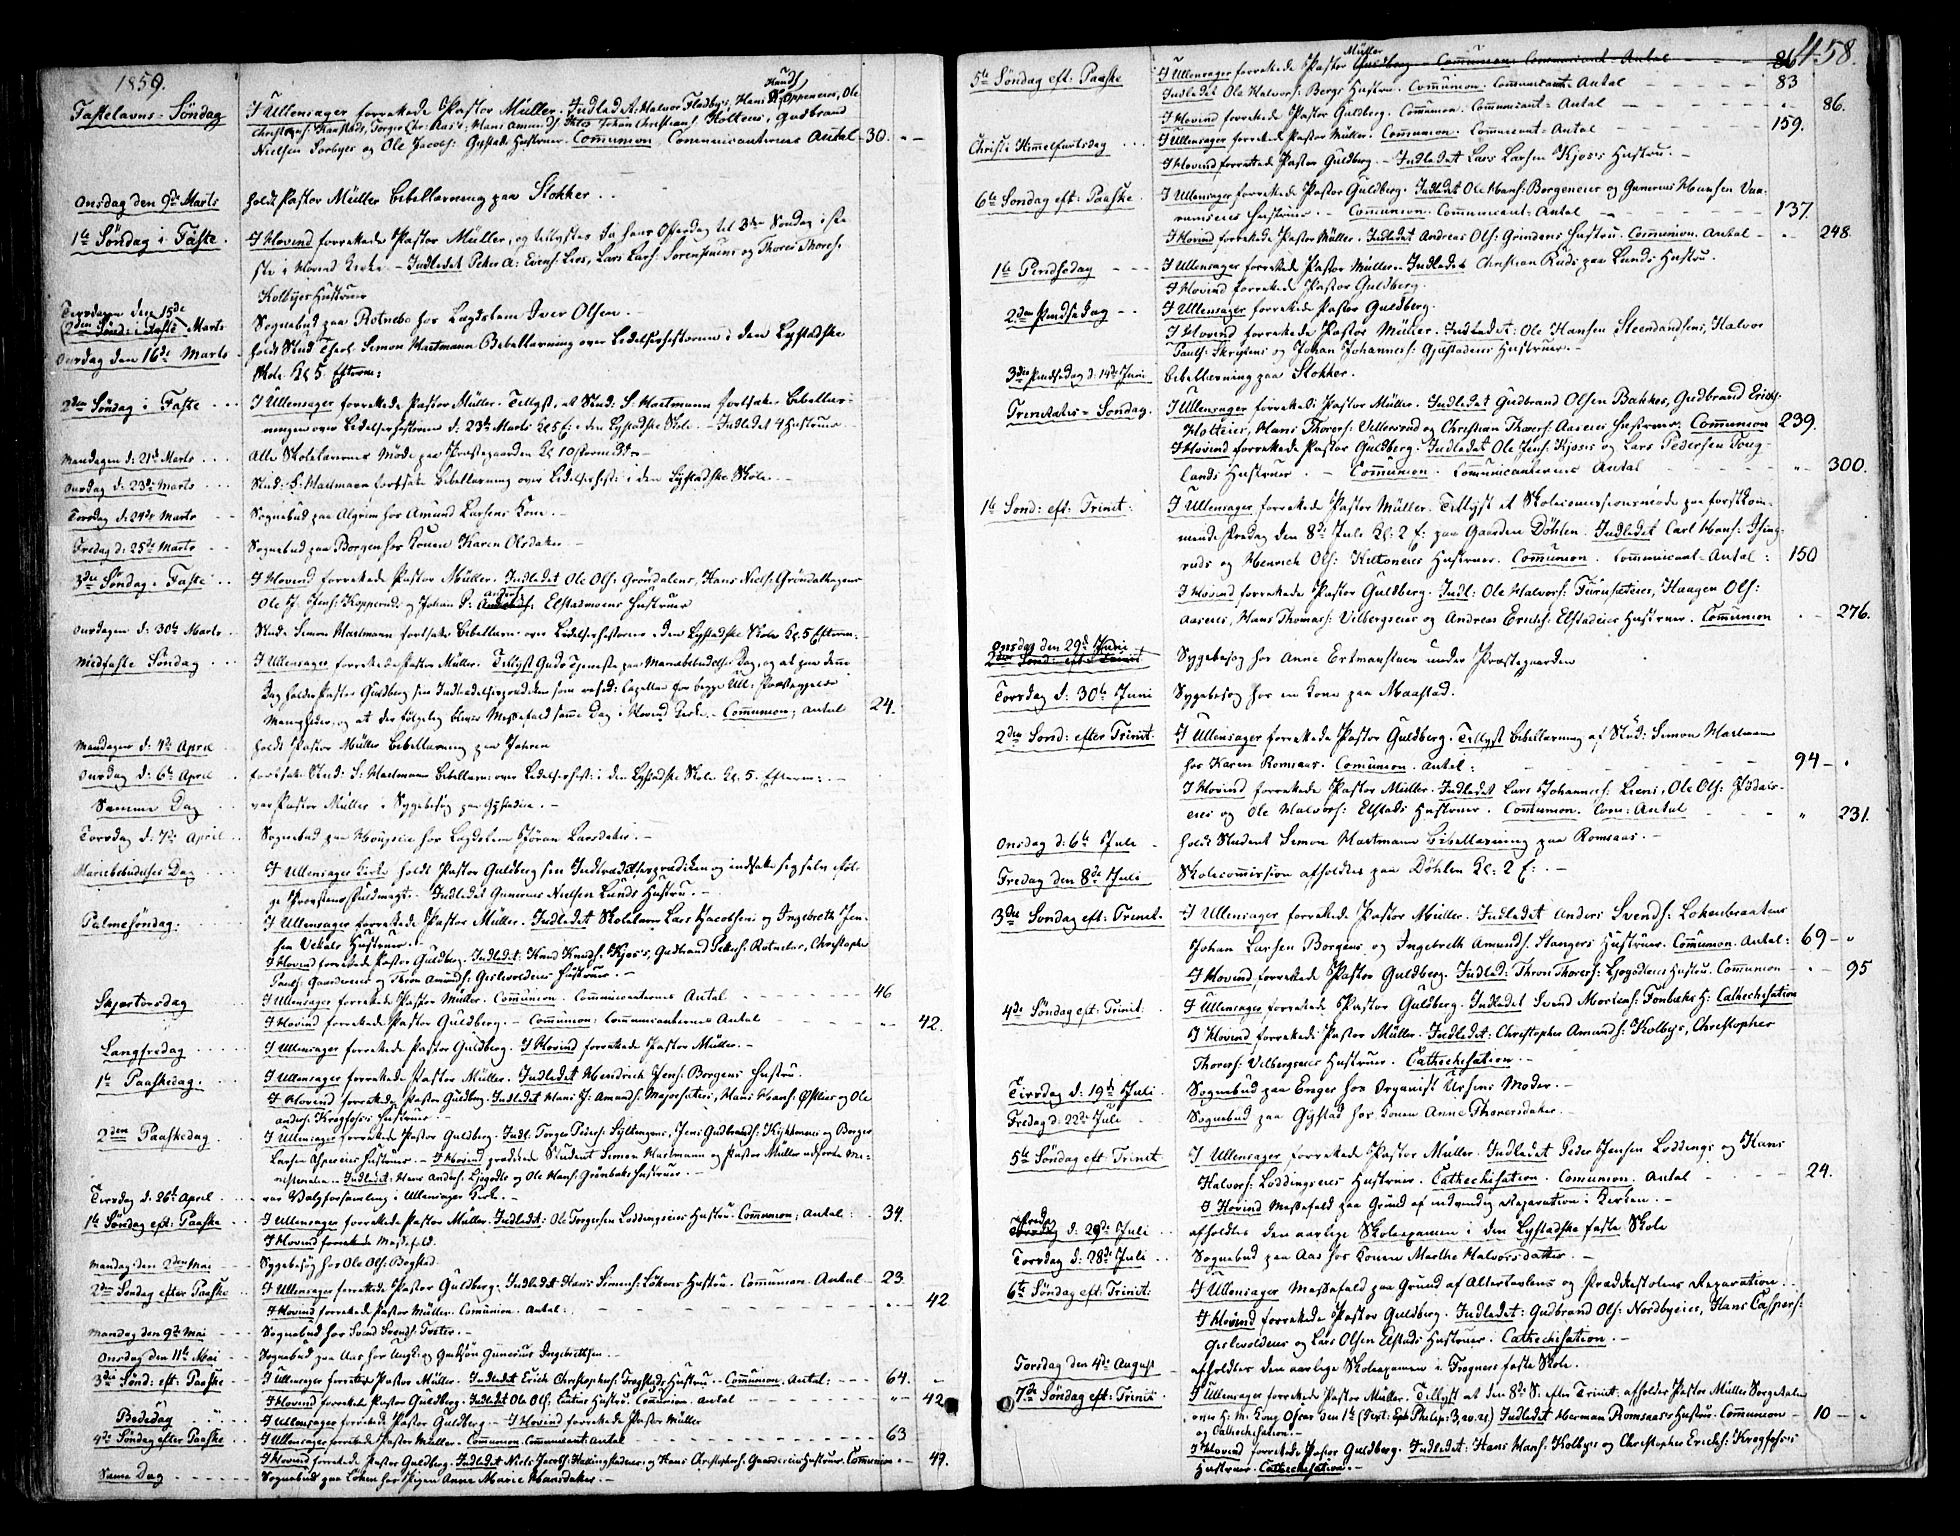 1859.
Fastelavns-Søndag I Ullensager forrettede Pastor Müller. Indled A: Halvor Fladbys, Hans Knuds: Oppeneies, Ole
Christophs: Haustads, Torger Chr: Aas's, Hans Amunds: Johan Christians: Holteies, Gudbrand
Nielsen Sørbyes og Ole Jacobs: Gystads Hustruer. Communion, Communicanternes Antal 30. " –
Onsdag den 9de Marts holdt Pastor Müller Bibellæsning paa Stokker.
1ste Søndag i Faste. I Hovind forrettede Pastor Müller, og tillystes da hans Offerdag til 3die Søndag i Fa-
ste i Hovind Kirke. – Indledet Peter A: Evens: Lies, Lars Lars: Sørenstuens og Thores Thores:
Kolbyes Hustruer
Tirsdagen den 15de Marts Sognebud paa Rotnebo hos Lægdslem Iver Olsen.
(2den Sønd: i Faste)
Onsdag den 16de Marts holdt Stud: Theol: Simon Hartmann Bibellæsning over Lidelseshistorien i den Gystadske
Skole Kl 5. Efterm:
2den Søndag i Faste I Ullensager forrettede Pastor Müller. Tillyst, at Stud: S. Hartmann fortsatte Bibellæs-
ningen over Lidelseshistorien d: 23de Marts Kl 5 E: i den Gystadske Skole. – Indledet 4 Hustruer
Mandagen d: 21de Marts Alle Skolelærernes Møde paa Præstegaarden Kl 10 Formiddag
Onsdag d: 23de Marts Stud: S: Hartmann fortsatte Bibellæsning over Lidelseshist: i den Gystadske Skole.
Torsdag d: 24de Marts Sognebud paa Algrim hos Amund Larsens Kone.
Fredag d: 25de Marts Sognebud paa Borgen hos Konen Karen Olsdatter
3die Søndag i Faste I Hovind forrettede Pastor Müller. Indledet Ole Ols: Grøndalens, Hans Niels: Grøndalhagens
Ole J. Jens: Kopperuds og Johan P: Anders: Elstadmoens Hustruer
Onsdagen d: 30te Marts Stud: Simon Hartmann fortsatte Bibellæsn: over Lidelseshistorien i den Gystadske Skole Kl. 5 Efterm:
Midfaste Søndag I Ullensager forrettede Pastor Müller. Tillyst Guds Tjeneste paa Mariæbebudelses Dag, og at paa denne
Dag holder Pastor Guldberg sin Indtrædelsesprædiken som resid: Capellan for begge Ull: Præstegjelds
Menigheder, og at der følgelig bliver Messefald samme Dag i Hovind Kirke. – Communion; Antal 24.
Mandagen d: 4de April holdt Pastor Müller Bibellæsning paa Jahren
Onsdag d: 6te April fortsatte Stud: S: Hartmann Bibellæsn: over Lidelseshist: i den Gystadske Skole Kl. 5. Efterm:
Samme Dag var Pastor Müller i Sygebesøg paa Gystadeie.
Torsdag d: 7de April Sognebud paa Haugseie hos Lægdslem Jøran Larsdatter.
Mariebebudelses Dag I Ullensager Kirke holdt Pastor Guldberg sin Indtrædelsesprædiken og indsatte sig selv ifølge
Provstens Fuldmagt. Indledet Gunerius Nielsen Lunds Hustru.
Palmesøndag: I Ullensager forrettede Pastor Müller. Indledet Skolelærer Lars Jacobsens og Ingebreth Jen-
sen Vekals Hustruer.
I Hovind forrettede Pastor Guldberg. Indledet: Knud Knuds: Kjos's, Gudbrand Peders: Rotnebos, Christopher
Pauls: Gaardereies og Thron Amunds: Gislevoldeies Hustruer.
Skjærtorsdag I Ullensager forrettede Pastor Müller. Communion. Communicanternes Antal 46
I Hovind forrettede Pastor Guldberg. – Communion: Communicanternes Antal 42.
Langfredag I Ullensager forrettede Pastor Guldberg. I Hovind forrettede Pastor Müller.
1ste Paaskedag. I Ullensager forrettede Pastor Müller. Indledet Hendrich Jens: Borgens Hustru.
I Hovind forrettede Pastor Guldberg. Indledet Hans J: Amunds: Majorsæters, Hans Hans: Østlies og Ole
Anders: Krogfos's Hustruer.
2den Paaskedag I Ullensager forrettede Pastor Guldberg. Indl: Torger Peders: Gyltengens, Jens Gudbrands: Kjikstuens og Borger
Larsen Aspeeies Hustruer. – I Hovind prædikede Student Simon Hartmann og Pastor Müller udførte Mi-
nisterialia. Indledet: Hans Anders: Ljøgodts og Ole Hans: Grønbaks Hustruer.
Tirsdag d: 26de April var Valgforsamling i Ullensager Kirke.
1ste Søndag eft: Paaske I Ullensager forrettede Pastor Müller. Indledet: Ole Torgersen Loddingseies Hustru. Communion; Antal 34.
I Hovind Messefald.
Mandag den 2den Mai Sygebesøg hos Ole Ols: Bogstad.
2den Søndag efter Paaske I Ullensager forrettede Pastor Guldberg. Indledet Hans Simens: Lökens Hustru. Communion. Antal 23.
I Hovind forrettede Pastor Müller. Comunion. Antal: 42
Mandag den 9de Mai Sognebud hos Svend Svends: Foster.
Onsdag den 11te Mai Sognebud paa Aas hos Ungk: og Gaardsøn Gunerius Ingebrethsen.
3die Sønd: eft: Paaske I Ullensager forrettede Pastor Müller. Indledet Erich Christophers: Trøgstads Hustru. Communion. Antal: 64.
I Hovind forrettede Pastor Guldberg. Indledet Ole Ols: Hustru. Comunion. Antal 42
Bededag I Ullensager forrettede Pastor Guldberg – I Hovind forrettede Pastor Müller
4de Søndag efter Paaske I Ullensager forrettede Pastor Müller. Communion. Communicant: Antal 63
I Hovind forrettede Pastor Guldberg. Indledet Niels Jacobs: og Hans Christophers: Gaardereies Hustruer. Comunion 49.
Samme Dag Sognebud paa Løken hos Pigen Anne Marie Hansdatter.
458.
5te Søndag eft: Paaske I Ullensager forrettede Pastor Müller
Indledet Ole Halvors: Bergs Hustru. Communion. Communicant: Antal 83
I Hovind forrettede Pastor Guldberg. Communion. Communicant: Antal 86.
Christi Himmelfartsdag I Ullensager forrettede Pastor Müller. Communion. Communicant: Antal 159.
I Hovind forrettede Pastor Guldberg. – Indledet Lars Larsen Kjos's Hustru.
6te Søndag eft: Paaske. I Ullensager forrettede Pastor Guldberg. Indledet Ole Hans: Borgeneies og Gunerius Hansen Vaa-
Hustruer. – Communion. Communicant: Antal 137.
I Hovind forrettede Pastor Müller. Indledet Andreas Ols: Grindens Hustru. Communion. Antal 248.
1ste Pindsedag I Ullensager forrettede Pastor Müller. Indledet Christian Ruds paa Lunds Hustru.
I Hovind forrettede Pastor Guldberg.
2den Pindsedag I Ullensager forrettede Pastor Guldberg.
I Hovind forrettede Pastor Müller. Indledet: Ole Hansen Steensandsens, Halvor
Pauls: Skrytens og Johan Johannes: Gjestadeies Hustruer.
3die Pindsedag d: 14de Juni Bibellæsning paa Stokker.
Trinitatis-Søndag. I Ullensager forrettede Pastor Müller. Indledet Gudbrand Olsen Bakkes, Gudbrand Erichs:
Holteies, Hans Thores: Ullerud og Christian Thores: Aaseies Hustruer. Communion 239.
I Hovind forrettede Pastor Guldberg. Indledet Ole Jens: Kjos's og Lars Pedersen Toug-
lands Hustruer. – Communion. Communicanternes Antal 300.
1ste Sønd: eft: Trinit: I Ullensager forrettede Pastor Müller. Tillyst et Skolecommissionsmøde paa førstkom-
mende Fredag den 8de Juli Kl: 2 E: paa Gaarden Döhlen. Indledet Carl Hans: Ising-
ruds og Henrich Ols: Hustruer. Communion. Communicant-Antal: 150
I Hovind forrettede Pastor Guldberg. Indl: Ole Halvors: Furusæteies, Haagen Ols:
Aaseies, Hans Thomas: Vilbergseies og Andreas Erichs: Elstadeies Hustruer. Communion 276.
Onsdag den 29de Juni Sygebesøg hos Anne Ertmanstuen under Præstegaarden
Torsdag d: 30te Juni Sygebesøg hos en Kone paa Maastad.
2den Sønd: efter Trinit: I Ullensager forrettede Pastor Guldberg. Tillyst Bibellæsning af Stud: Simon Hartmann
hos Karen Romsaas. Comunion. Antal: 94
I Hovind forrettede Pastor Müller. Indledet Lars Johannes: Liens, Ole Ols: Flödals-
eies og Ole Halvors: Elstads Hustruer. Communion. Com: Antal 231.
Onsdag d: 6te Juli holdt Student Simon Hartmann Bibellæsning paa Romsaas.
Fredag den 8de Juli Skolecommission afholdtes paa Döhlen Kl: 2 E:.
3die Søndag eft: Trinit. I Ullensager forrettede Pastor Müller. Indledet Anders Svends: Lökenbraatens
Johan Larsen Borgens og Ingebreth Amunds: Stangers Hustruer. Communion. Antal: 69
I Hovind forrettede Pastor Guldberg. Indled: Thron Thores: Ljøgodteies Hustru. Communion 95
4de Søndag eft: Trinit I Ullensager forrettede Pastor Guldberg. Indledet Svend Mortens: Fonbæks H: Cathechisation
I Hovind forrettede Pastor Müller. Indledet: Christopher Amunds: Kolbys, Christopher
Thores: Vilbergseies Hustruer. Cathechisation.
Tirsdag d: 19de Juli Sognebud paa Enger hos Organist Ursins Moder.
Fredag d: 22de Juli Sognebud paa Gystad hos Konen Anne Thoresdatter.
5te Søndag eft: Trinit I Ullensager forrettede Pastor Müller. Indledet Peder Jensen Loddings og Hans
Halvors: Loddingseies Hustruer. Cathechisation. Comunion. Antal 24.
I Hovind Messefald paa Grund af indvendig Reparation i Kirken.
Fredag d: 29de Juli afholdtes den aarlige Skoleexamen i den Gystadske faste Skole
Torsdag d: 28de Juli Sognebud paa Aas hos Konen Marthe Halvorsdatter.
6te Søndag eft: Trinit: I Ullensager Messefald paa Grund af Altertavlens og Prædikestolens Reparation.
I Hovind forrettede Pastor Guldberg. Indledet: Gudbrand Ols: Nordbyeies, Hans Caspers:
Gislevoldeies og Lars Olsen Elstads Hustruer. Cathechisation.
Torsdag den 4de August afholdtes den aarlige Skoleexamen i Trogners faste Skole.
7de Søndag eft: Trinit: I Ullensager forrettede Pastor Müller. Tillyst at den 8de S. efter Trinit: afholder Pastor Müller Sørgetalen
over H. M. Kong Oscar den 1ste (Text: Ep: Philip: 3, 20. 21) Indledet Herman Romsaas's Hustru. Communion 10
og Cathechisation.
I Hovind forrettede Pastor Guldberg. Indledet: Hans Hans: Kolbys og Christopher Erichs: Krogfos's
Hustruer. Cathechisation.